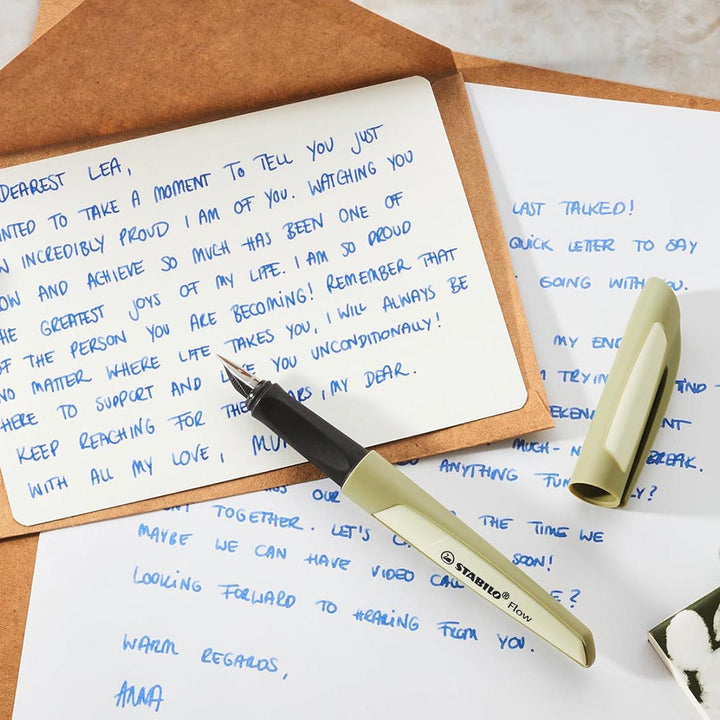 DEAREST LEA,
NTED TO TAKE A MOMENT TO TELL YOU JUST
W INCREDIBLY PROUD I AM OF YOU. WATCHING YOU
OW AND ACHIEVE SO MUCH HAS BEEN ONE OF
HE GREATEST JOYS OF MY LIFE. I AM SO PROUD
OF THE PERSON YOU ARE BECOMING! REMEMBER THAT
NO MATTER WHERE LIFE TAKES YOU, I WILL ALWAYS BE
HERE TO SUPPORT AND YOU UNCONDITIONALLY!
KEEP REACHING FOR THE , MY DEAR.
WITH ALL MY LOVE, MU
LAST TALKED!
QUICK LETTER TO SAY
GOING WITH YOU.
MY END
TRYIN
MUCH- BREAK.
ANYTHING FUN LY?
OUR
TOGETHER. LET'S THE TIME WE
MAYBE WE CAN HAVE VIDEO CALL SOON!
LOOKING FORWARD TO HEARING FROM YOU.
WARM REGARDS,
ANNA
STABILO® Flow